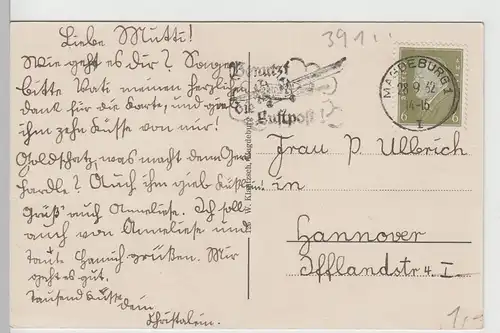 Liebe Mutti!
Wie geht es dir? Sage
bitte Vati meinen herzlichen
dank für die Karte, und gieb
ihm zehn Küsse von mir!
Goldschatz, was macht denn Ger
hardle? Auch ihm gieb Küßchen!
Grüß auch Anneliese. Ich soll
auch von Anneliese und
Tante Hannich grüßen. Mir
geht es gut.
Tausend Küsse
Dein
Christalein.
391
Benutzt
die
Luftpost
MAGDEBURG 1
28.9.32
14-15
6 6
Magdeburg
Frau P. Ulbrich
in
Hannover
Ifflandstr 4 I